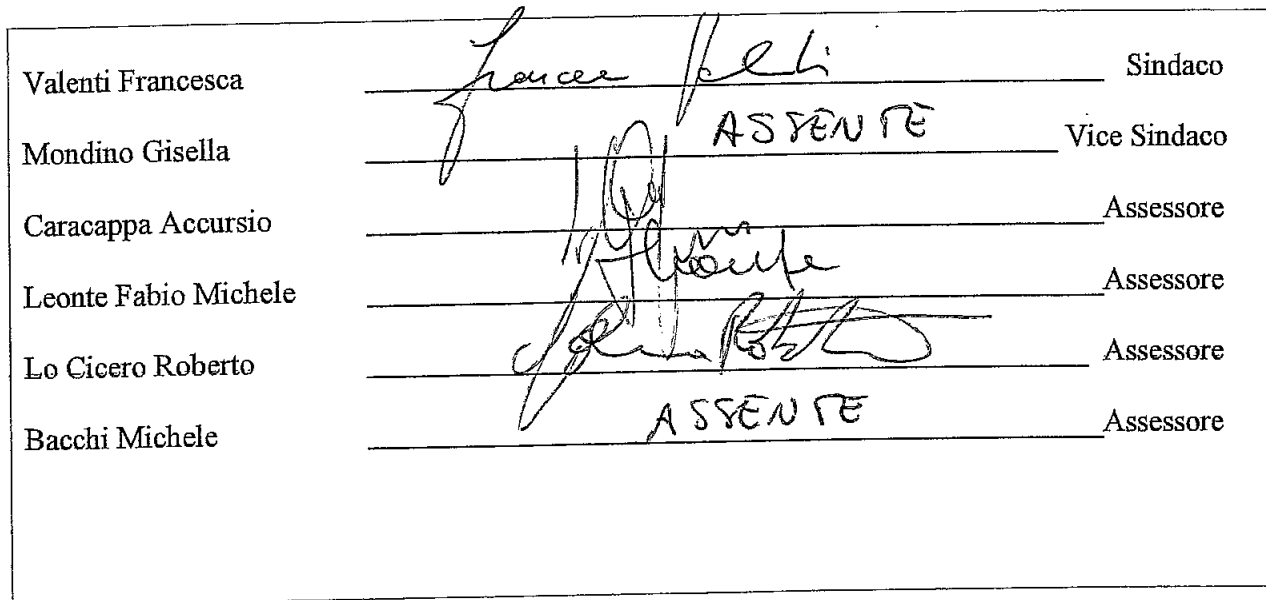 Valenti Francesca Sindaco
Mondino Gisella ASSENTE Vice Sindaco
Caracappa Accursio Assessore
Leonte Fabio Michele Assessore
Lo Cicero Roberto Assessore
Bacchi Michele ASSENTE Assessore